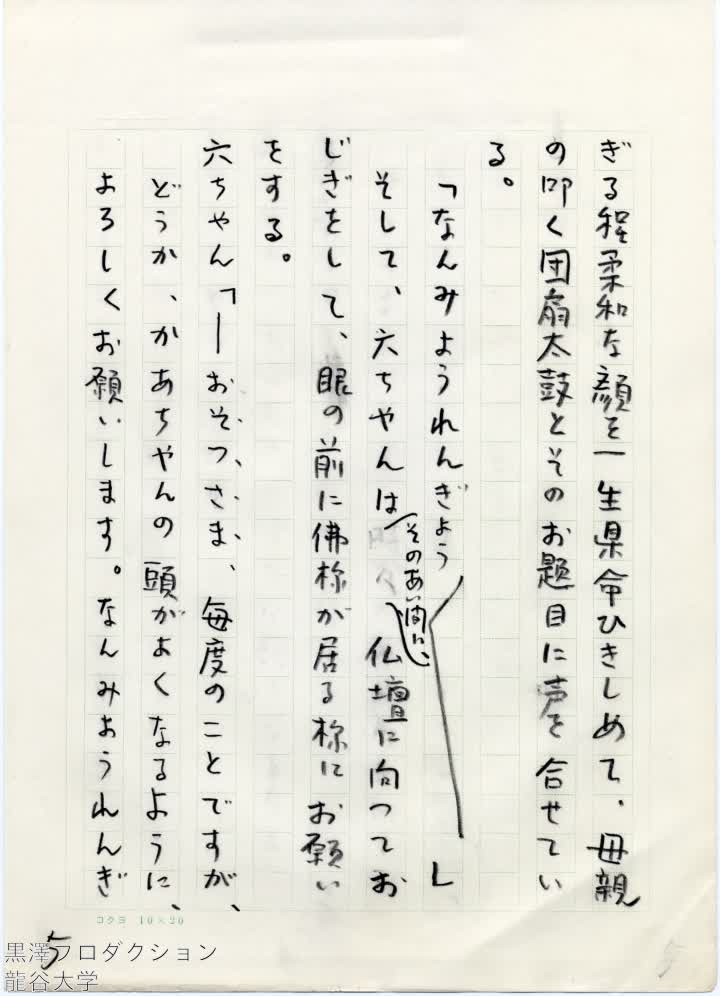 ぎる程柔和な顔を一生県命ひきしめて、母親
の叩く団扇太鼓とそのお題目に声を合せてい
る。
「なんみようれんぎよう――」
そして、六ちやんは
そのあい間に、
仏壇に向つてお
じぎをして、眼の前に佛様が居る様にお願い
をする。
六ちやん「―おそつさま、毎度のことですが、
どうか、かあちやんの頭がよくなるように、
よろしくお願いします。なんみようれんぎ
コクヨ 10×20
5
5
黒澤プロダクション
龍谷大学